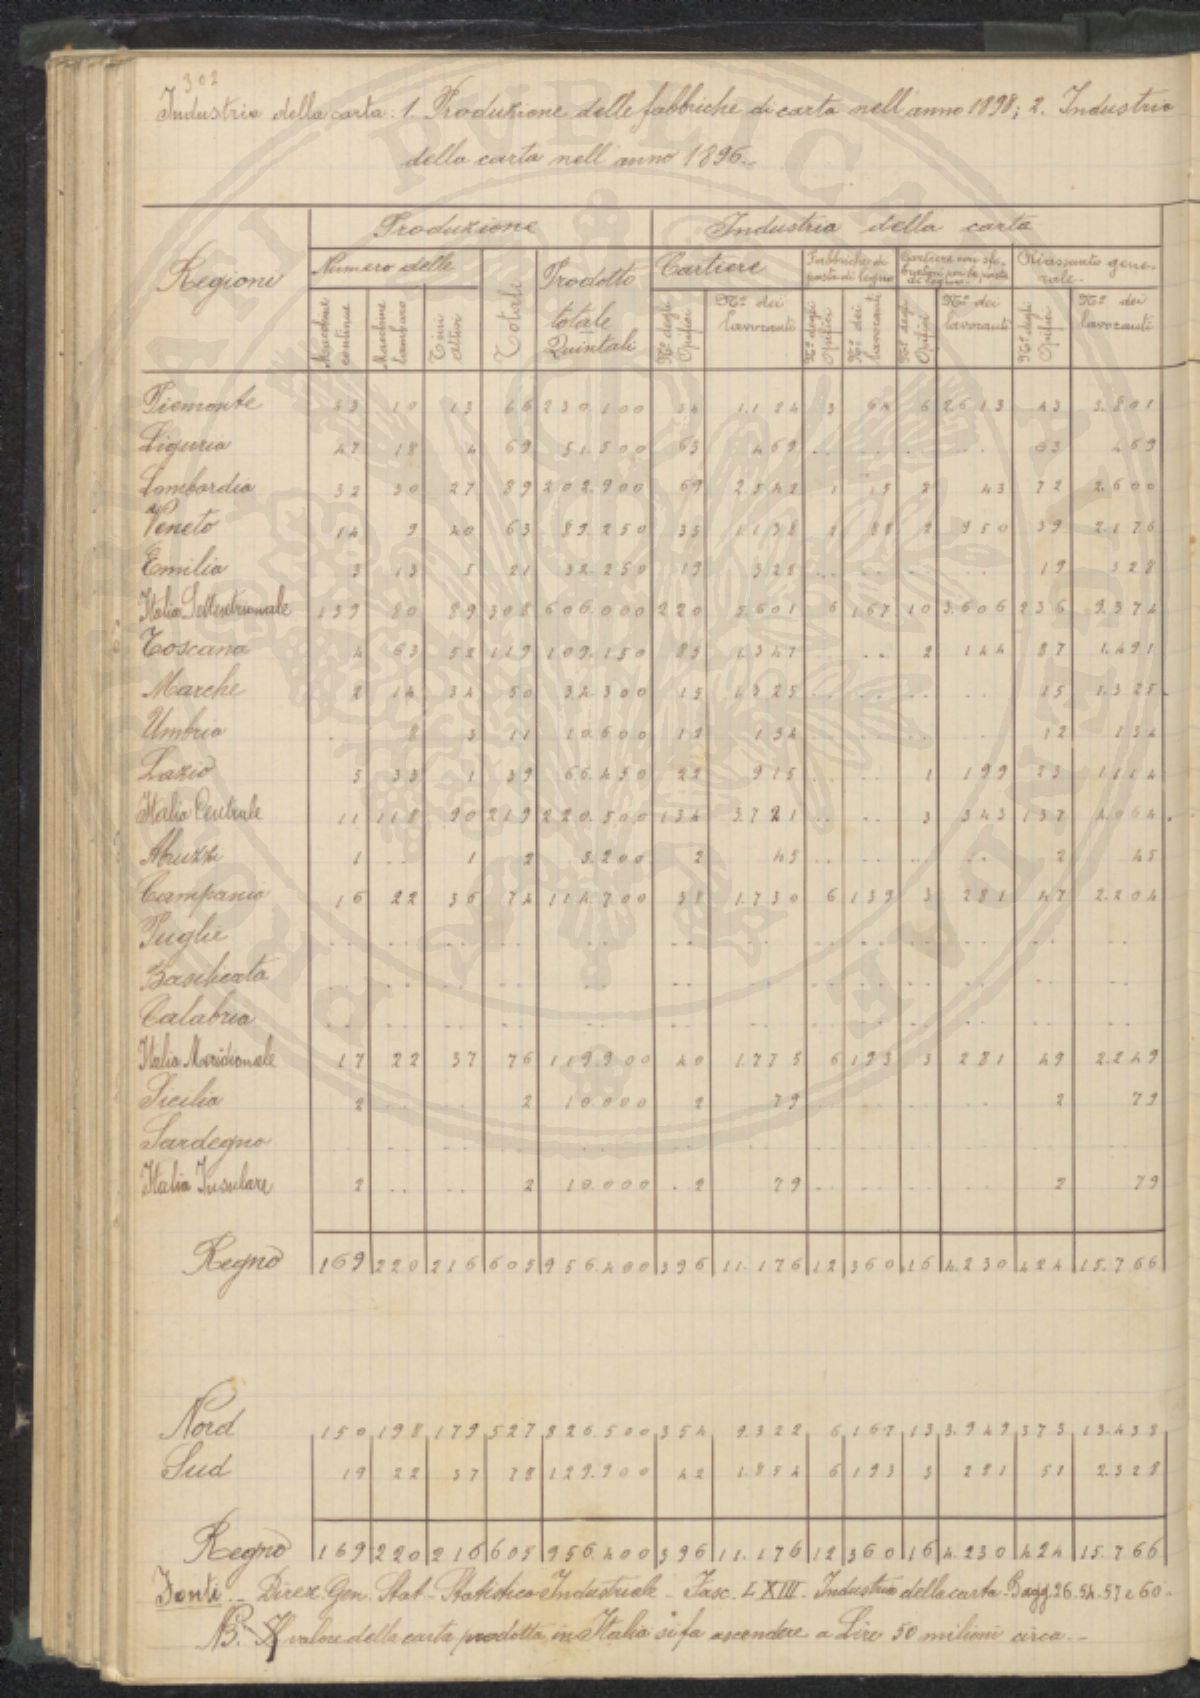 302
Industria della carta: 1. Produzione delle fabbriche di carta nell'anno 1898; 2. Industria
della carta nell'anno 1896.
Regioni Produzione Industria della carta
Numero delle Totali Prodotto totale Quintali Cartiere Fabbriche di pasta di legno Cartiere con sfibratori per la pasta di legno Riassunto generale
Macchine continue Macchine tamburo Tini attivi Nº degli Opifici Nº dei lavoranti Nº degli Opifici Nº dei lavoranti Nº degli Opifici Nº dei lavoranti Nº degli Opifici Nº dei lavoranti
Piemonte 43 10 13 66 230.100 34 1.124 3 64 6 2613 43 3.801
Liguria 47 18 4 69 51.500 63 469 .. .. .. .. 63 469
Lombardia 32 30 27 89 202.900 69 2.542 1 15 2 43 72 2.600
Veneto 14 9 40 63 89.250 35 1.138 2 88 2 950 39 2.176
Emilia 3 13 5 21 32.250 19 328 .. .. .. .. 19 328
Italia Settentrionale 139 80 89 308 606.000 220 5.601 6 167 10 3.606 236 9.374
Toscana 4 63 52 119 109.150 85 1.347 .. .. 2 144 87 1.491
Marche 2 14 34 50 34.300 15 1.325 .. .. .. .. 15 1.325
Umbria .. 8 3 11 10.600 12 134 .. .. .. .. 12 134
Lazio 5 33 1 39 66.450 22 915 .. .. 1 199 23 1.114
Italia Centrale 11 118 90 219 220.500 134 3.721 .. .. 3 343 137 4.064
Abruzzi 1 .. 1 2 5.200 2 45 .. .. .. .. 2 45
Campania 16 22 36 74 114.700 38 1.730 6 193 3 281 47 2.204
Puglie .. .. .. .. .. .. .. .. .. .. .. .. ..
Basilicata .. .. .. .. .. .. .. .. .. .. .. .. ..
Calabria .. .. .. .. .. .. .. .. .. .. .. .. ..
Italia Meridionale 17 22 37 76 119.900 40 1.775 6 193 3 281 49 2.249
Sicilia 2 .. .. 2 10.000 2 79 .. .. .. .. 2 79
Sardegna .. .. .. .. .. .. .. .. .. .. .. .. ..
Italia Insulare 2 .. .. 2 10.000 2 79 .. .. .. .. 2 79
Regno 169 220 216 605 956.400 396 11.176 12 360 16 4.230 424 15.766
Nord 150 198 179 527 826.500 354 9.322 6 167 13 3.949 373 13.438
Sud 19 22 37 78 129.900 42 1.854 6 193 3 281 51 2.328
Regno 169 220 216 605 956.400 396 11.176 12 360 16 4.230 424 15.766
Fonti - Direz. Gen. Stat. Statistica Industriale - Fasc. LXIII - Industria della carta - Pagg. 26. 54. 57 e 60 -
NB. Il valore della carta prodotta in Italia si fa ascendere a Lire 50 milioni circa -